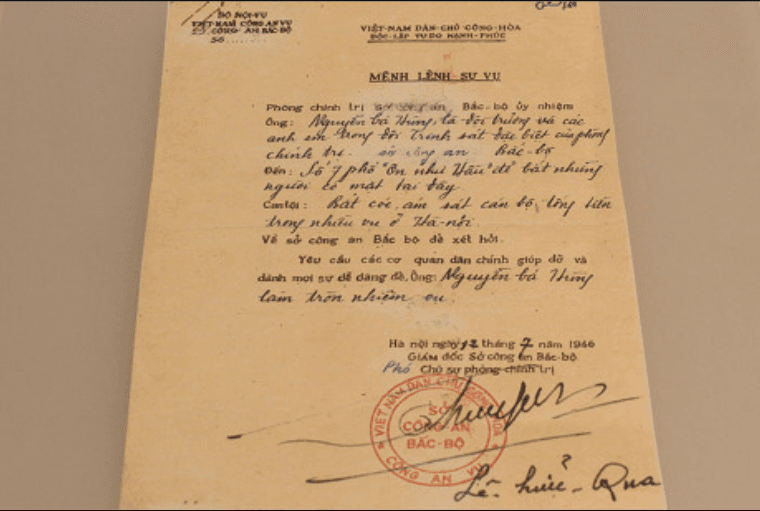 BỘ NỘI-VỤ
VIỆT-NAM CÔNG AN VỤ
SỞ CÔNG AN BẮC-BỘ
Số ........
VIỆT-NAM DÂN-CHỦ CỘNG-HÒA
ĐỘC-LẬP TỰ-DO HẠNH-PHÚC
MỆNH LỆNH SỰ VỤ
Phòng chính trị sở công an Bắc-bộ ủy nhiệm
Ông: Nguyễn bá Hùng, là đội trưởng và các
anh em trong đội Trinh sát đặc biệt của phòng
chính trị. sở công an Bắc-bộ
Đến: Số 7 phố "Ôn như Hầu" để bắt những
người có mặt tại đây.
Can tội: Bắt cóc, ám sát cán bộ, tống tiền
trong nhiều vụ ở Hà-nội.
Về sở công an Bắc bộ để xét hỏi.
Yêu cầu các cơ quan dân chính giúp đỡ và
dành mọi sự dễ dàng để, Ông: Nguyễn bá Hùng
làm tròn nhiệm vụ.
Hà nội ngày 12 tháng 7 năm 1946
GIÁM đốc Sở công an Bắc-bộ
Phó Chủ sự phòng chính trị
VIỆT NAM DÂN CHỦ CỘNG HÒA
SỞ
CÔNG-AN
BẮC-BỘ
CÔNG AN VỤ
Lê-hữu-Qua